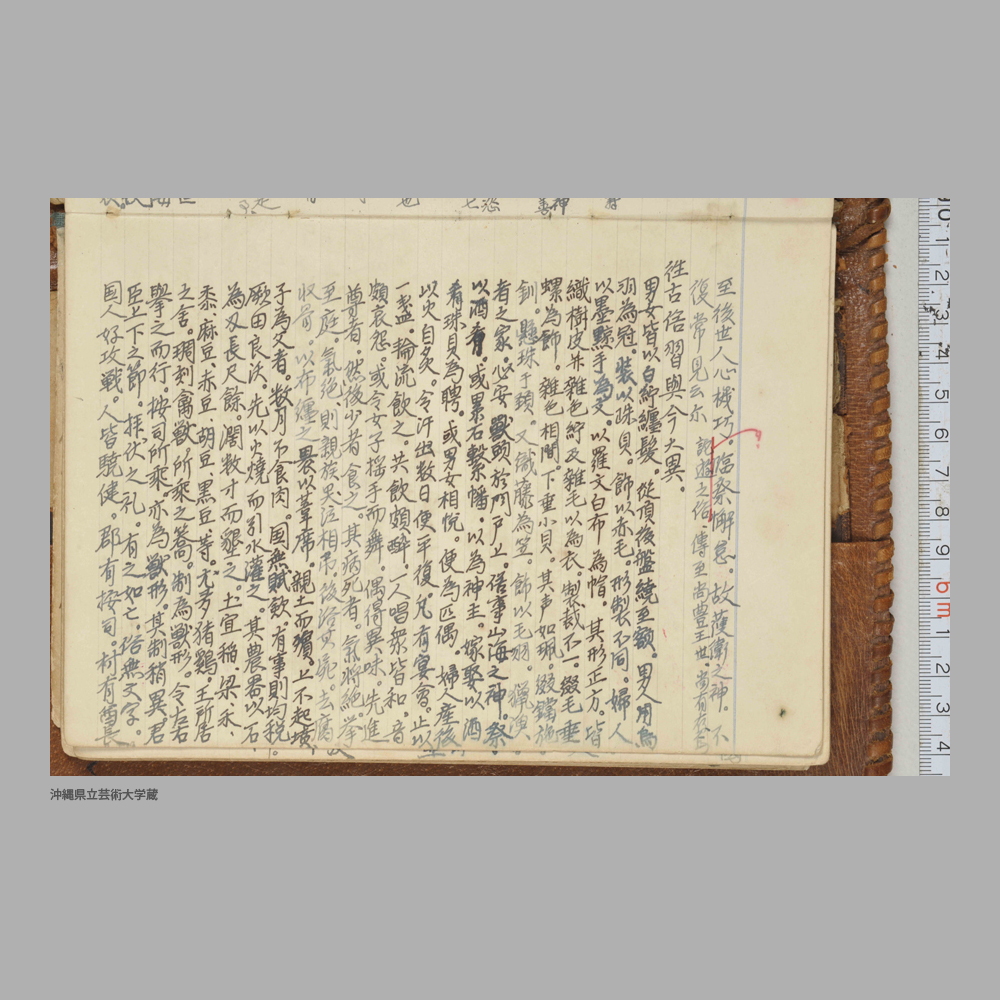 至後世人心機巧。臨祭懈怠。故護衛之神。不
復常見云尓 記遊之俗。傳至尚豊王世。尚有
往古俗習與今大異。
男女皆以白紵纏髮。從項後盤繞至額。男人用鳥
羽為冠。裝以珠貝。飾以赤毛。形製不同。婦人
以墨黥手為文。以羅文白布為帽。其形正方。皆
織樹皮并雜色紵及雜毛以為衣。製裁不一。綴毛垂
螺為飾。雜色相間。下垂小貝。其声如珮。綴鐺施
釧。懸珠于頸。又織藤為笠。飾以毛羽。獵漁
者之家。必安獸頭於門戸上。俗事山海之神。祭
以酒肴。或累石繋幡。以為神主。嫁娶以酒
肴珠貝為聘。或男女相悅。便為匹偶。婦人産後
以火自炙。令汗出数日便平復。凡有宴會。止以
一盞。輪流飲之。共飲頗醉。一人唱衆皆和。音
頗哀怨。或令女子揺手而舞。偶得異味。先進
尊者。然後少者食之。其病死者。氣將絶。挙
至庭。氣絶。則親族哭泣相吊。後浴其
収骨。以布纏之。畏以葦席。親土而殯。上不起墳。
子為父者。数月不食肉。国無賦歛。有事則均税。
厥田良沃。先以火燒而引水灌之。其農器以石
為刄。長尺餘。濶数寸而墾之。土宜稲、梁、禾、
黍、麻豆、赤豆、胡豆、黒豆、等。尤多猪鷄。王所居
之舎。琱刻禽獣。所乘之蒿。制為獣形。令左右
擧之而行。按司所乘。亦為獣形。其制稍異。君
臣上下之節。拝伏之礼。有之如亡。俗無文字。
国人好攻戦。人皆驍健。郡有按司。村有酋長
沖縄県立芸術大学蔵